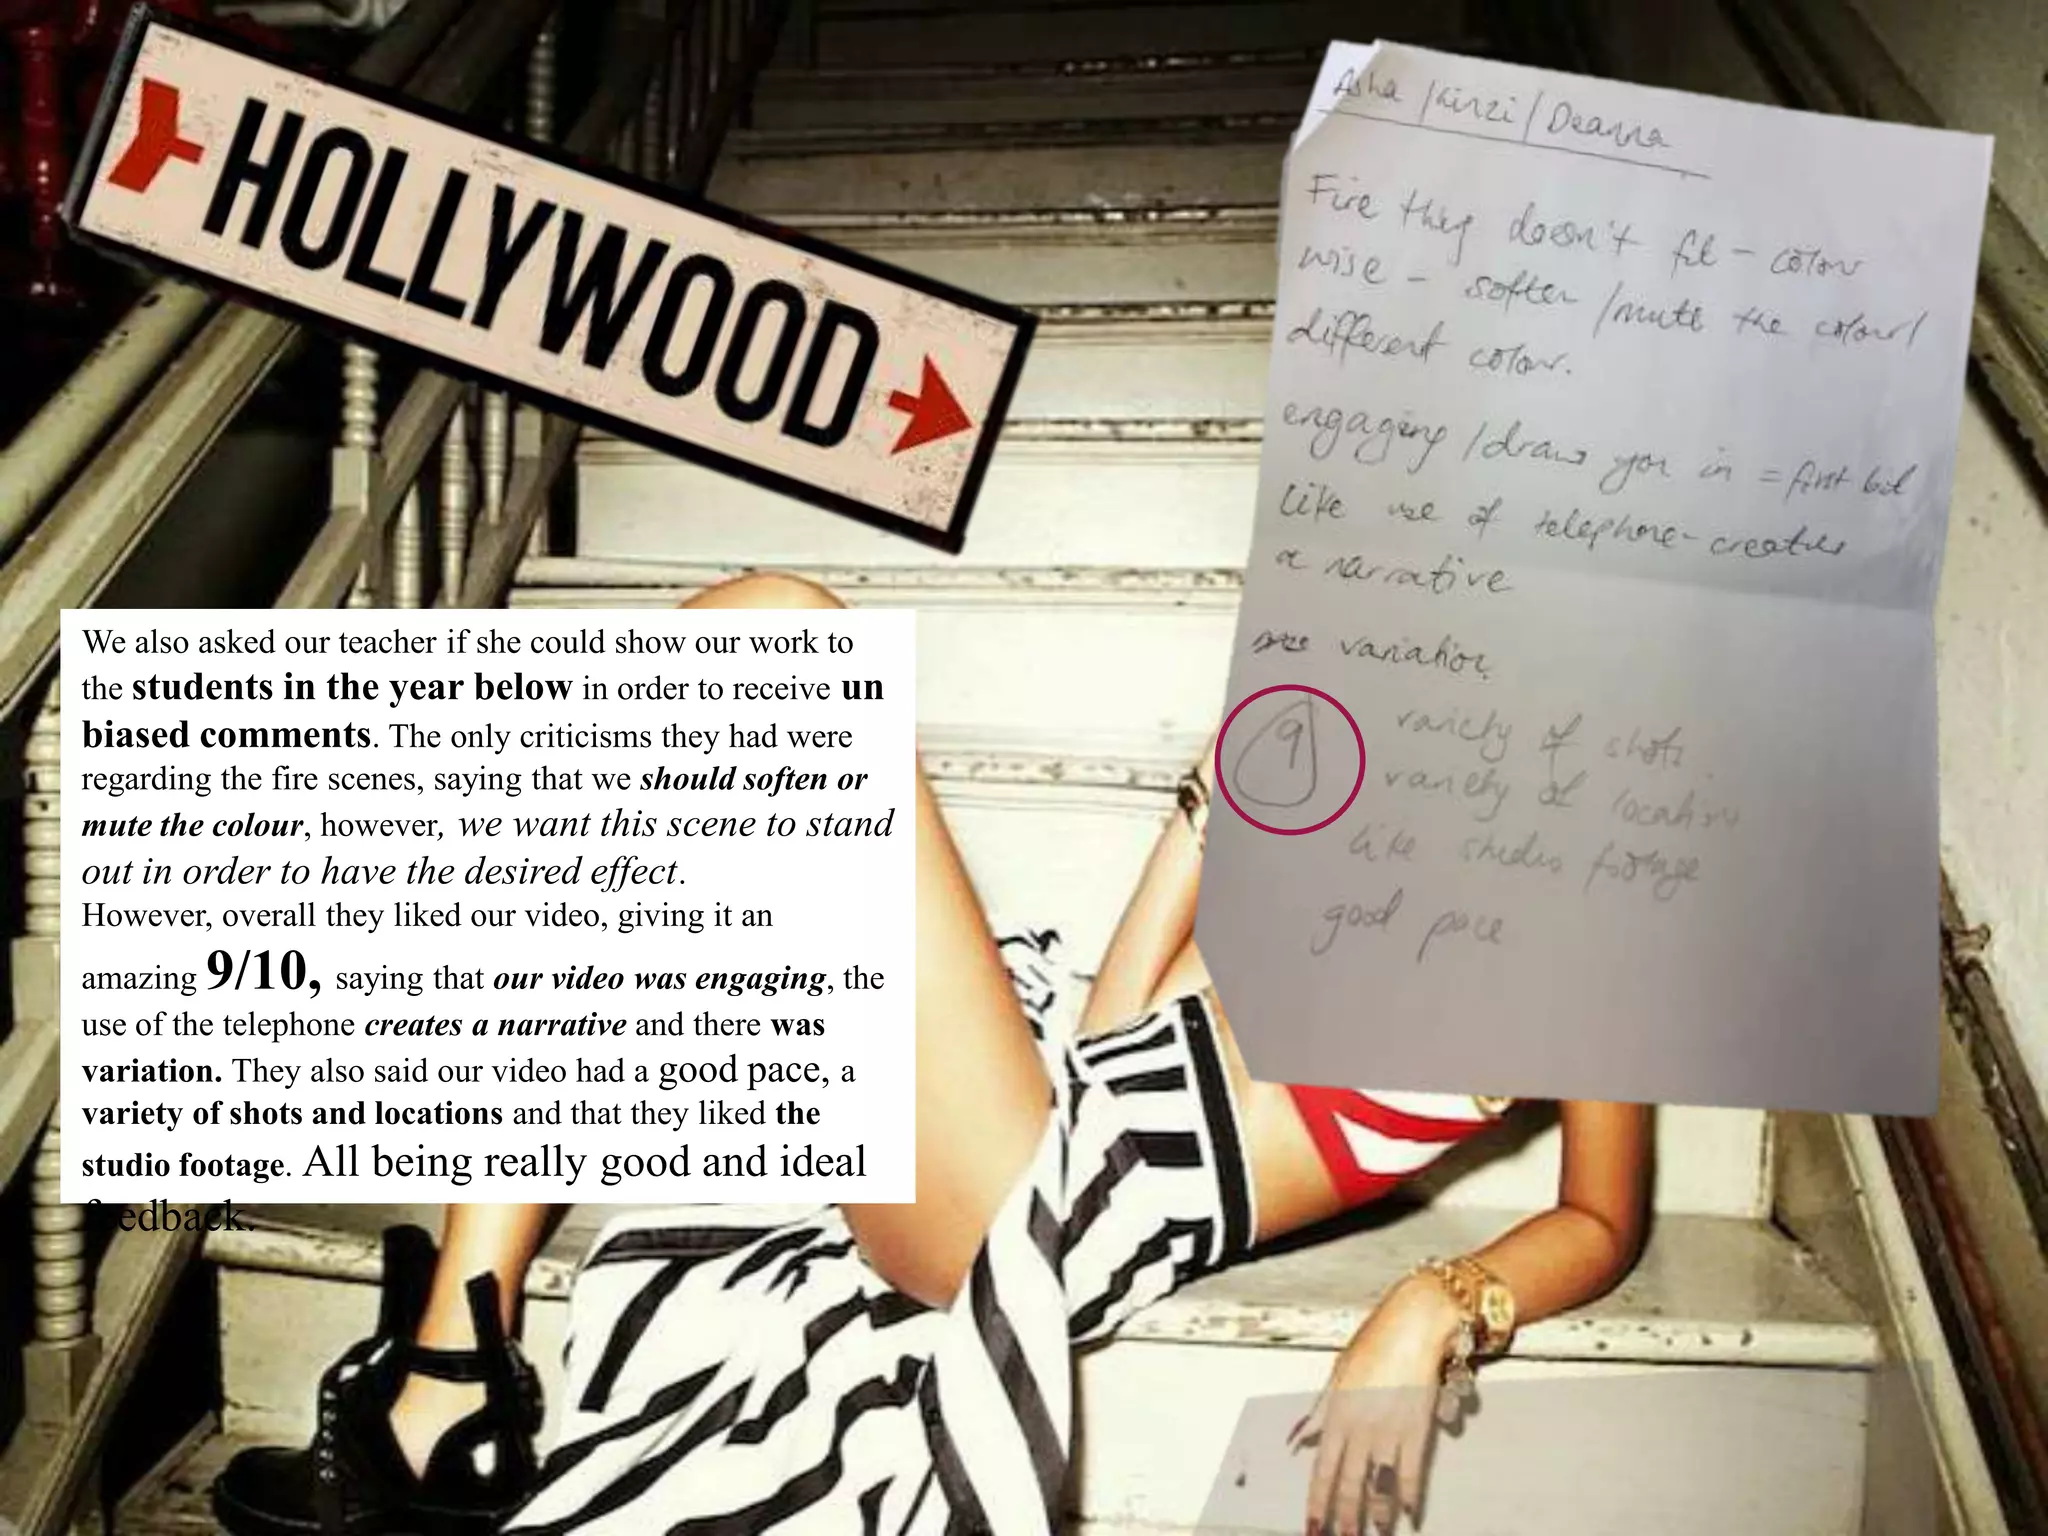 HOLLYWOOD
We also asked our teacher if she could show our work to
the students in the year below in order to receive un
biased comments. The only criticisms they had were
regarding the fire scenes, saying that we should soften or
mute the colour, however, we want this scene to stand
out in order to have the desired effect.
However, overall they liked our video, giving it an
amazing 9/10, saying that our video was engaging, the
use of the telephone creates a narrative and there was
variation. They also said our video had a good pace, a
variety of shots and locations and that they liked the
studio footage. All being really good and ideal
feedback.
Asha / Kinzi / Deanna
Fire thing doesn't fit - colour
wise - soften / mute the colour /
different colour.
engaging / draws you in = first bit
like use of telephone - creates
a narrative
variation.
9
variety of shots.
variety of locations
like studio footage
good pace